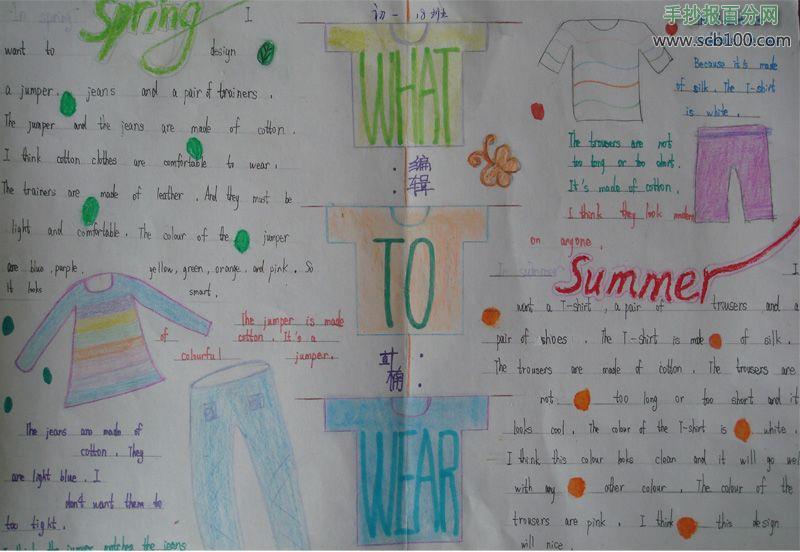 In spring
Spring
I
want to design
a jumper, jeans and a pair of trainers.
The jumper and the jeans are made of cotton.
I think cotton clothes are comfortable to wear.
The trainers are made of leather. And they must be
light and comfortable. The colour of the jumper
are blue, purple, yellow, green, orange and pink. So
it looks smart.
The jumper is made
of cotton. It's a
colourful jumper.
The jeans are made of
cotton. They
are light blue. I
don't want them to
too tight.
I think the jumper matches the jeans
初一
班
WHAT
编辑
:
TO
:
WEAR
手抄报百分网
www.scb100.com
Because it's made
of silk. The T-shirt
is white.
The trousers are not
too long or too short.
It's made of cotton.
I think they look modern
on anyone.
In summer
Summer
I
want a T-shirt, a pair of trousers and a
pair of shoes. The T-shirt is made of silk.
The trousers are made of cotton. The trousers are
not too long or too short and it
looks cool. The colour of the T-shirt is white.
I think this colour looks clean and it will go well
with any other colour. The colour of the
trousers are pink. I think this design
will nice.